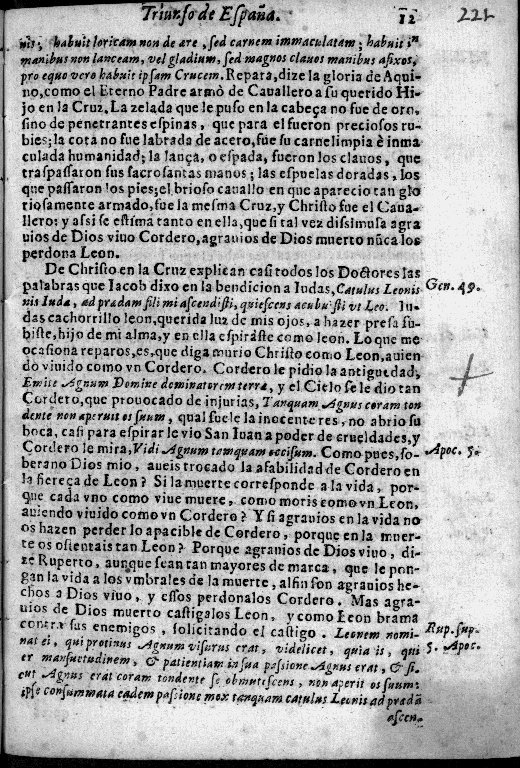 Triunfo de España. 12 221
nis; habuit loricam non de ære, sed carnem immaculatam; habuit in
manibus non lanceam, vel gladium, sed magnos clauos manibus afixos,
pro equo vero habuit ipsam Crucem. Repara, dize la gloria de Aqui-
no, como el Eterno Padre armò de Cauallero a su querido Hi-
jo en la Cruz. La zelada que le puso en la cabeça no fue de oro,
sino de penetrantes espinas, que para el fueron preciosos ru-
bies; la cota no fue labrada de acero, fue su carne limpia è inma
culada humanidad; la lança, o espada, fueron los clauos, que
traspassaron sus sacrosantas manos; las espuelas doradas, los
que passaron los pies; el brioso cauallo en que aparecio tan glo
riosamente armado, fue la mesma Cruz, y Christo fue el Caua-
llero: y assi se estima tanto en ella, que si tal vez dissimula agra
uios de Dios viuo Cordero, agrauios de Dios muerto nũca los
perdona Leon.
De Christo en la Cruz explican casi todos los Doctores las
palabras que Iacob dixo en la bendicion a Iudas, Catulus Leonis Gen. 49.
nis Iuda, ad prædam fili mi ascendisti, quiescens acubuisti vt Leo. Iu-
das cachorrillo leon, querida luz de mis ojos, a hazer presa su-
biste, hijo de mi alma, y en ella espiraste como leon. Lo que me
ocasiona reparos, es, que diga murio Christo como Leon, auien
do viuido como vn Cordero. Cordero le pidio la antiguedad,
Emite Agnum Domine dominatorem terræ, y el Cielo se le dio tan
Cordero, que prouocado de injurias, Tanquam Agnus coram ton
dente non aperuit os suum, qual suele la inocente res, no abrio su
boca, casi para espirar le vio San Iuan a poder de crueldades, y
Cordero le mira, Vidi Agnum tamquam occisum. Como pues, so- Apoc. 5.
berano Dios mio, aueis trocado la afabilidad de Cordero en
la fiereça de Leon? Si la muerte corresponde a la vida, por-
que cada vno como viue muere, como moris como vn Leon,
auiendo viuido como vn Cordero? Y si agrauios en la vida no
os hazen perder lo apacible de Cordero, porque en la muer-
te os ostentais tan Leon? Porque agrauios de Dios viuo, di-
ze Ruperto, aunque sean tan mayores de marca, que le pon-
gan la vida a los vmbrales de la muerte, alfin son agrauios he-
chos a Dios viuo, y essos perdonalos Cordero. Mas agra-
uios de Dios muerto castigalos Leon, y como Leon brama
contra sus enemigos, solicitando el castigo. Leonem nomi- Rup. sup.
nat ei, qui protinus Agnum visurus erat, videlicet, quia is, qui 5. Apoc.
er mansuetudinem, & patientiam in sua passione Agnus erat, & si-
cut Agnus erat coram tondente se obmutescens, non aperit os suum:
ipse consummata eadem passione mox tanquam catulus Leonis ad prædã
ascen-